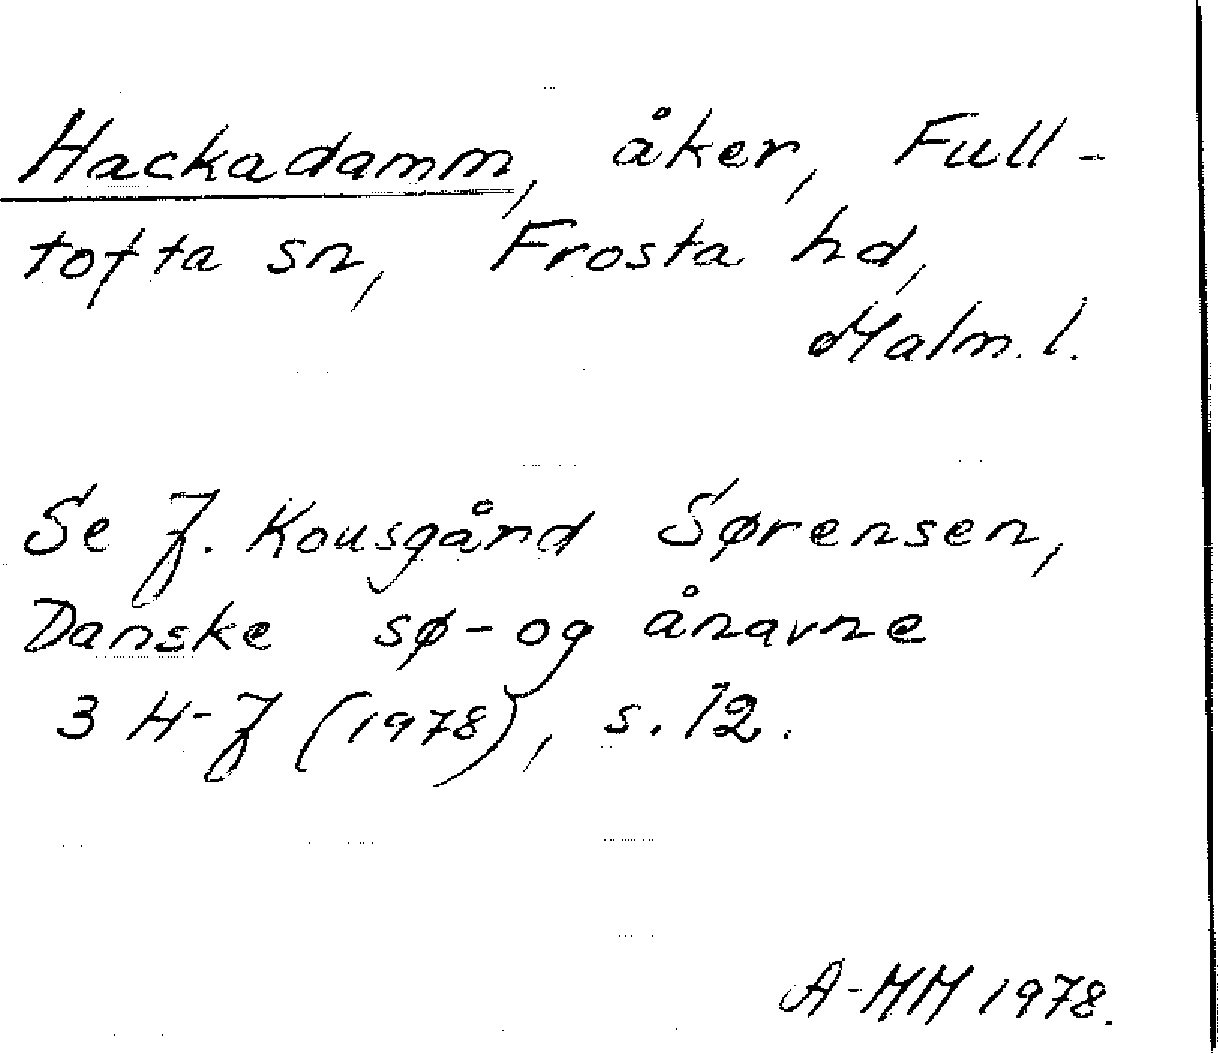 Hackadamm, åker, Full-
tofta sn, Frosta hd,
Malm. l.
Se J. Kousgård Sørensen,
Danske sø- og ånavne
3 H-J (1978), s. 12.
A-MM 1978.